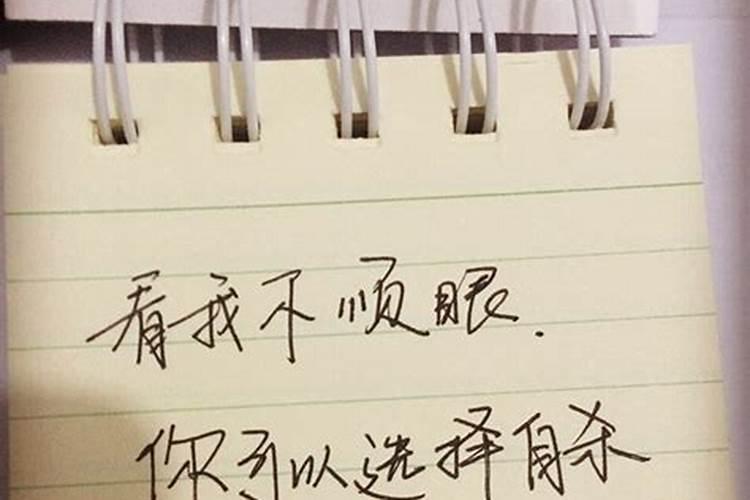 看我不顺眼.
你可以选择自杀